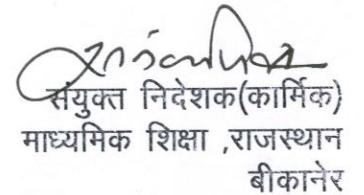 संयुक्त निदेशक(कार्मिक)
माध्यमिक शिक्षा ,राजस्थान
बीकानेर